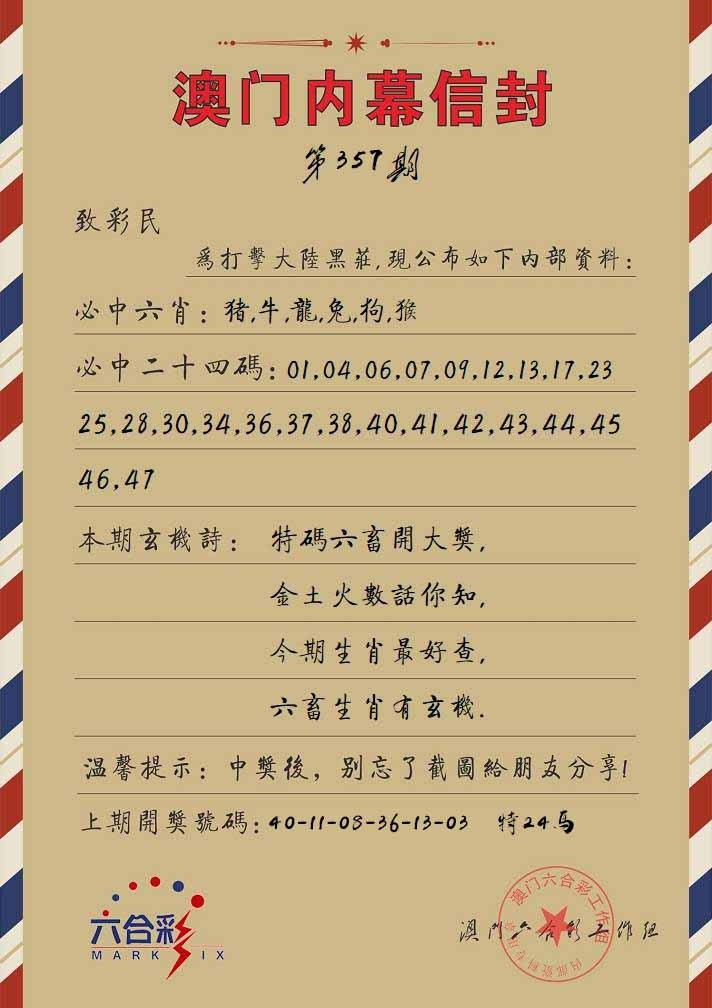 澳门内幕信封
第357期
致彩民
爲打擊大陸黑莊,現公布如下内部資料:
必中六肖:猪,牛,龍,兔,狗,猴
必中二十四碼:01,04,06,07,09,12,13,17,23
25,28,30,34,36,37,38,40,41,42,43,44,45
46,47
本期玄機詩: 特碼六畜開大獎,
金土火數話你知,
今期生肖最好查,
六畜生肖有玄機.
温馨提示:中獎後,别忘了截圖給朋友分享!
上期開獎號碼:40-11-08-36-13-03 特24馬
六合彩
MARK SIX
澳门六合彩工作组
澳门六合彩工作组
内部资料专用章